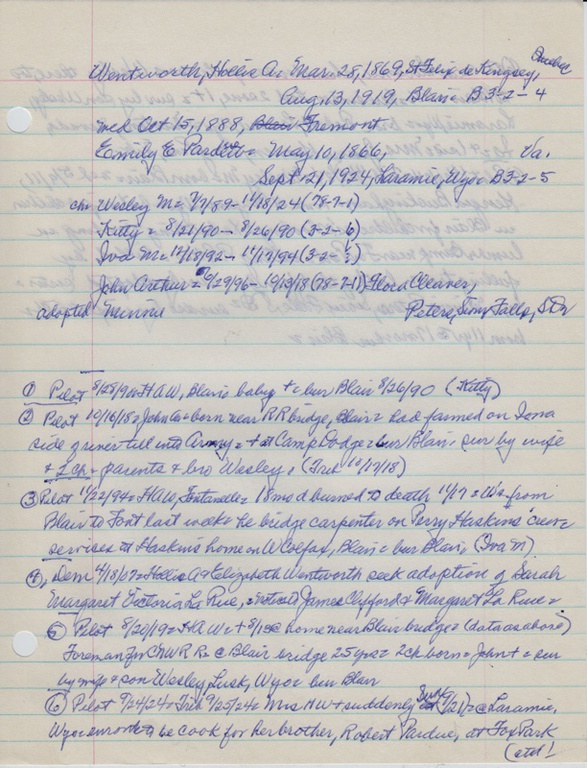 Quebec
Wentworth, Hollis A. Mar. 28, 1869, St Felix de Kingsey,
Aug, 13, 1919, Blair B3-2-4
md Oct 15, 1888, Blair Fremont
Emily E Pardett = May 10, 1866, Va.
Sept. 21, 1924, Laramie, Wyo B3-2-5
ch: Wesley M = 7/7/89 - 11/18/24 (78-7-1)
Kitty = 8/21/90 - 8/26/90 (3-2-6)
Iva M = 12/18/92 - 11/17/94 (3-2-
John Arthur = 6/29/96 - 10/13/18 (78-7-11) Flora Cleaver,
adopted Minnie Peters, Sioux Falls, S D
① Pilot 8/28/90 = H A W, Blair's baby + = bur Blair 8/26/90 (Kitty)
② Pilot 10/16/18 = John A = born near RR bridge, Blair = had farmed on Iowa
side of river till into Army = + at Camp Dodge = bur Blair, sur by wife
+ 1 ch - parents + bro Wesley, (Trib 10/17/18)
③ Pilot 11/22/94 = HAW, Fontanelle = 18 mo d burned to death 11/17 = Ws from
Blair to Font last week = he bridge carpenter on Perry Haskins' crew =
services at Haskins home on W Colfax, Blair = bur Blair, (Iva M)
4, Dem 4/18/07 = Hollis A + Elizabeth Wentworth seek adoption of Sarah
Margaret Victoria La Rue, James Clifford + Margaret La Rue =
⑤ Pilot 8/20/19 = H A W = + 8/13 @ home near Blair bridge = (data as above)
Foreman for C NW R R @ Blair bridge 25 yrs = 2 ch born = John + = sur
by wife + son Wesley, Lusk, Wyo = bur Blair
⑥ Pilot 9/24/24 = Trib 9/25/24 = Mrs HW + suddenly Sun (9/21) = @ Laramie,
Wyo = enroute to be cook for her brother, Robert Pardue, at Fox Park
(ctd!